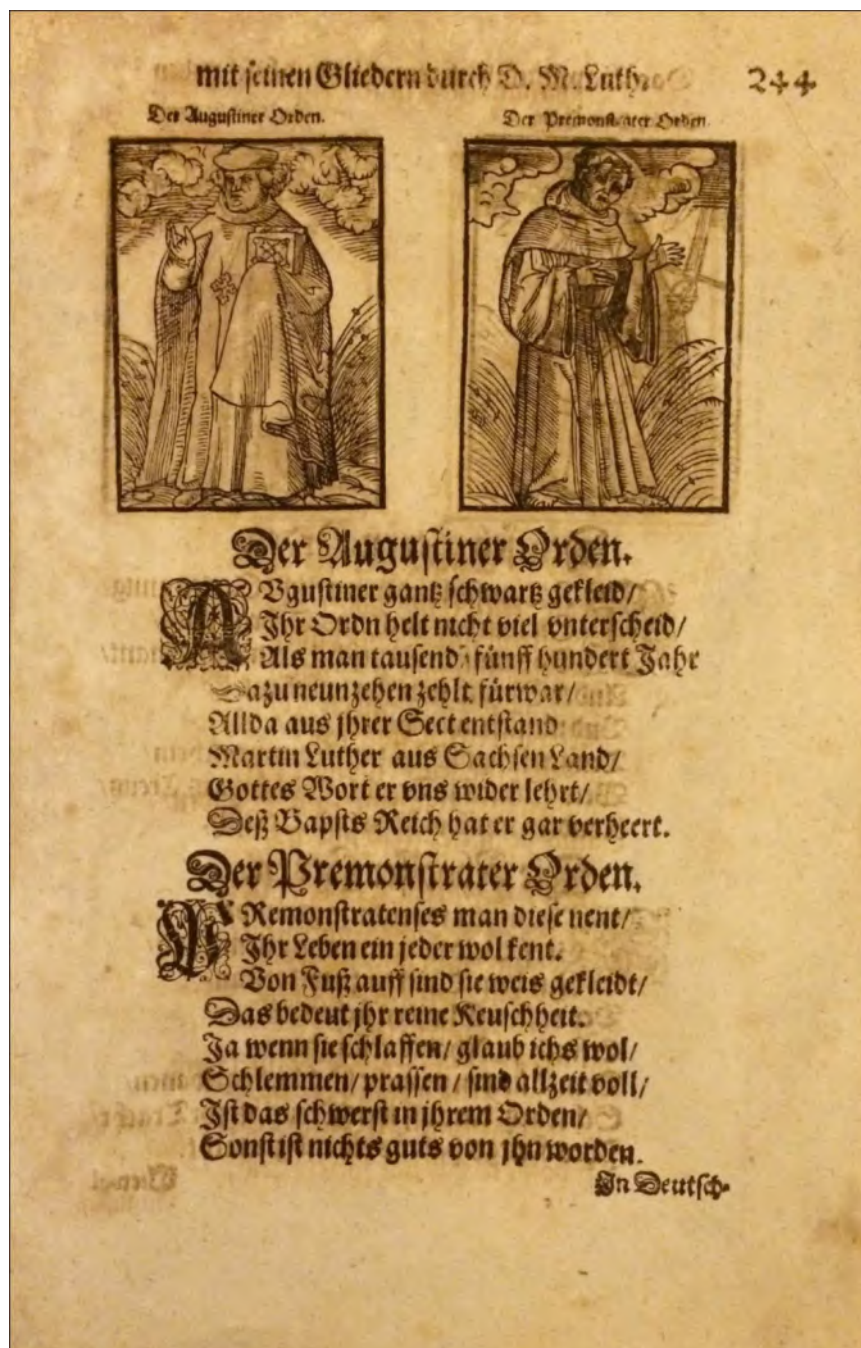 mit seinen Gliedern durch D. M. Luth.
244
Der Augustiner Orden.
Der Premonstrater Orden.
Der Augustiner Orden.
AVgustiner gantz schwartz gekleid/
Ihr Ordn helt nicht viel vnterscheid/
Als man tausend fünff hundert Jahr
Dazu neunzehen zehlt fürwar/
Allda aus jhrer Sect entstand
Martin Luther aus Sachsen Land/
Gottes Wort er vns wider lehrt/
Deß Bapsts Reich hat er gar verheert.
Der Premonstrater Orden.
PRemonstratenses man diese nent/
Ihr Leben ein jeder wol kent.
Von Fuß auff sind sie weis gekleidt/
Das bedeut jhr reine Keuschheit.
Ja wenn sie schlaffen/ glaub ichs wol/
Schlemmen/ prassen/ sind allzeit voll/
Ist das schwerst in jhrem Orden/
Sonst ist nichts guts von jhn worden.
In Deutsch-